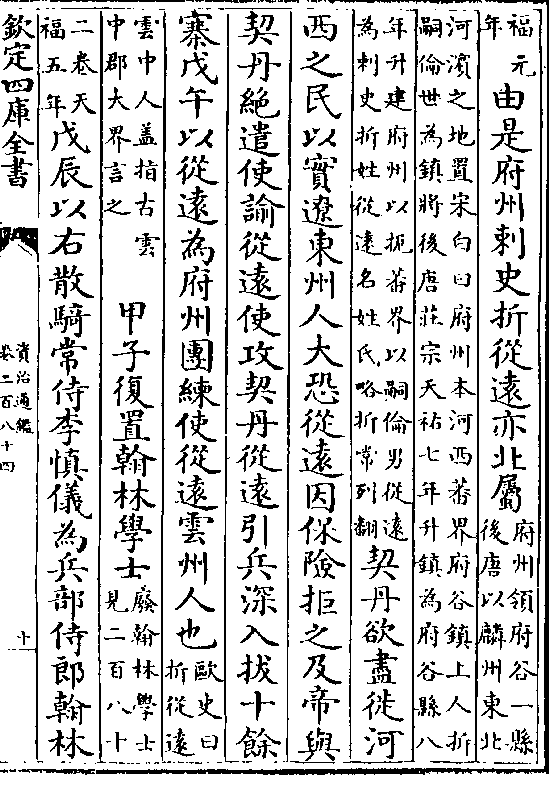 福元年由是府州刺史折從遠亦北屬府州領府谷一縣後唐以麟州東北
河濱之地置宋白曰府州本河西蕃界府谷鎮土人折嗣倫世為鎮將後唐莊宗天祐七年升鎮為府谷縣八
年升建府州以扼蕃界以嗣倫男從遠為刺史折姓從遠名姓氏略折常列翻契丹欲盡徙河
西之民以實遼東州人大恐從遠因保險拒之及帝與
契丹絶遣使諭從遠使攻契丹從遠引兵深入拔十餘
寨戊午以從遠為府州團練使從遠雲州人也歐史曰折從遠
雲中人盖指古雲中郡大界言之甲子復置翰林學士廢翰林學士見二百八十
二卷天福五年戊辰以右散騎常侍李慎儀為兵部侍郎翰林
欽定四庫全書
資治通鑑
卷二百八十四
十